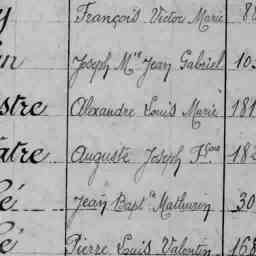 François Victor Marie 88
Joseph M.ie Jean Gabriel 10
stre Alexandre Louis Marie 181
âtre Auguste Joseph F.çois 182
é Jean Bapt.e Mathurin 30
é Pierre Louis Valentin 168